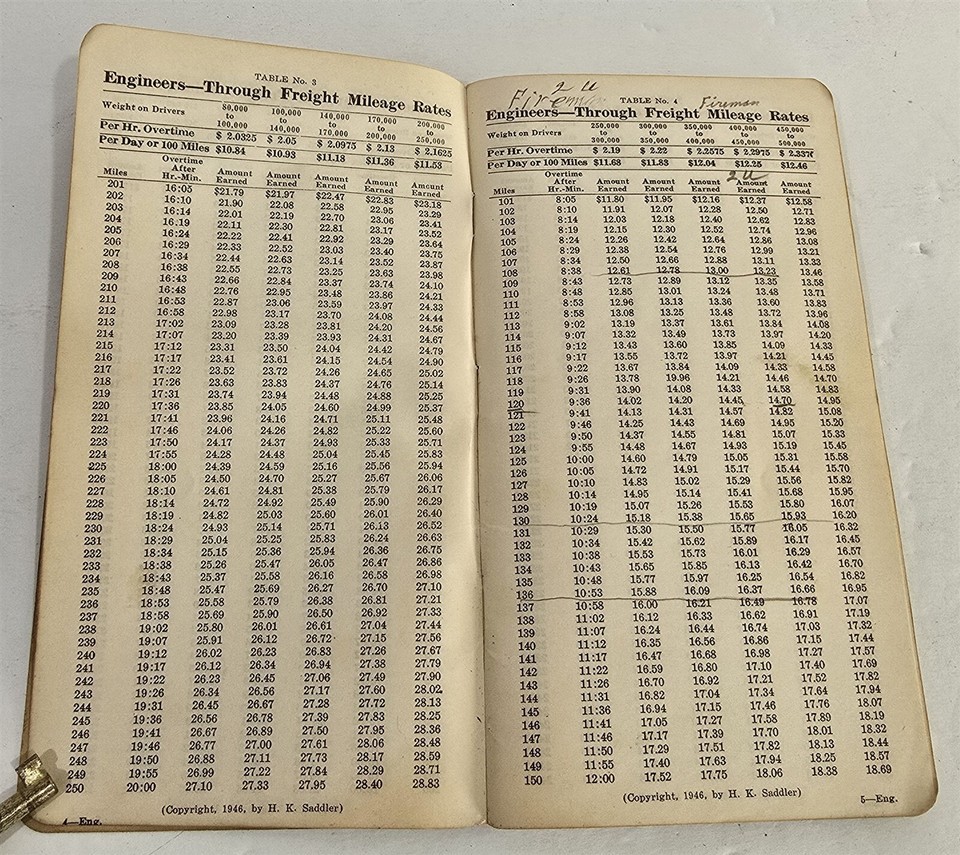 TABLE No. 3
Engineers—Through Freight Mileage Rates
Weight on Drivers 80,000 to 100,000 100,000 to 140,000 140,000 to 170,000 170,000 to 200,000 200,000 to 250,000
Per Hr. Overtime $ 2.0325 $ 2.05 $ 2.0975 $ 2.13 $ 2.1625
Per Day or 100 Miles $10.84 $10.93 $11.18 $11.36 $11.53
Miles Overtime After Hr.-Min. Amount Earned Amount Earned Amount Earned Amount Earned Amount Earned
201 16:05 $21.79 $21.97 $22.47 $22.83 $23.18
202 16:10 21.90 22.08 22.58 22.95 23.29
203 16:14 22.01 22.19 22.70 23.06 23.41
204 16:19 22.11 22.30 22.81 23.17 23.52
205 16:24 22.22 22.41 22.92 23.29 23.64
206 16:29 22.33 22.52 23.03 23.40 23.75
207 16:34 22.44 22.63 23.14 23.52 23.87
208 16:38 22.55 22.73 23.25 23.63 23.98
209 16:43 22.66 22.84 23.37 23.74 24.10
210 16:48 22.76 22.95 23.48 23.86 24.21
211 16:53 22.87 23.06 23.59 23.97 24.33
212 16:58 22.98 23.17 23.70 24.08 24.44
213 17:02 23.09 23.28 23.81 24.20 24.56
214 17:07 23.20 23.39 23.93 24.31 24.67
215 17:12 23.31 23.50 24.04 24.42 24.79
216 17:17 23.41 23.61 24.15 24.54 24.90
217 17:22 23.52 23.72 24.26 24.65 25.02
218 17:26 23.63 23.83 24.37 24.76 25.14
219 17:31 23.74 23.94 24.48 24.88 25.25
220 17:36 23.85 24.05 24.60 24.99 25.37
221 17:41 23.96 24.16 24.71 25.11 25.48
222 17:46 24.06 24.26 24.82 25.22 25.60
223 17:50 24.17 24.37 24.93 25.33 25.71
224 17:55 24.28 24.48 25.04 25.45 25.83
225 18:00 24.39 24.59 25.16 25.56 25.94
226 18:05 24.50 24.70 25.27 25.67 26.06
227 18:10 24.61 24.81 25.38 25.79 26.17
228 18:14 24.72 24.92 25.49 25.90 26.29
229 18:19 24.82 25.03 25.60 26.01 26.40
230 18:24 24.93 25.14 25.71 26.13 26.52
231 18:29 25.04 25.25 25.83 26.24 26.63
232 18:34 25.15 25.36 25.94 26.36 26.75
233 18:38 25.26 25.47 26.05 26.47 26.86
234 18:43 25.37 25.58 26.16 26.58 26.98
235 18:48 25.47 25.69 26.27 26.70 27.10
236 18:53 25.58 25.79 26.38 26.81 27.21
237 18:58 25.69 25.90 26.50 26.92 27.33
238 19:02 25.80 26.01 26.61 27.04 27.44
239 19:07 25.91 26.12 26.72 27.15 27.56
240 19:12 26.02 26.23 26.83 27.26 27.67
241 19:17 26.12 26.34 26.94 27.38 27.79
242 19:22 26.23 26.45 27.06 27.49 27.90
243 19:26 26.34 26.56 27.17 27.60 28.02
244 19:31 26.45 26.67 27.28 27.72 28.13
245 19:36 26.56 26.78 27.39 27.83 28.25
246 19:41 26.67 26.89 27.50 27.95 28.36
247 19:46 26.77 27.00 27.61 28.06 28.48
248 19:50 26.88 27.11 27.73 28.17 28.59
249 19:55 26.99 27.22 27.84 28.29 28.71
250 20:00 27.10 27.33 27.95 28.40 28.83
(Copyright, 1946, by H. K. Saddler)
4—Eng.
Firemen 2 U
TABLE No. 4 Fireman
Engineers—Through Freight Mileage Rates
Weight on Drivers 250,000 to 300,000 300,000 to 350,000 350,000 to 400,000 400,000 to 450,000 450,000 to 500,000
Per Hr. Overtime $ 2.19 $ 2.22 $ 2.2575 $ 2.2975 $ 2.337
Per Day or 100 Miles $11.68 $11.83 $12.04 $12.25 $12.46
2 U
Miles Overtime After Hr.-Min. Amount Earned Amount Earned Amount Earned Amount Earned Amount Earned
101 8:05 $11.80 $11.95 $12.16 $12.37 $12.58
102 8:10 11.91 12.07 12.28 12.50 12.71
103 8:14 12.03 12.18 12.40 12.62 12.83
104 8:19 12.15 12.30 12.52 12.74 12.96
105 8:24 12.26 12.42 12.64 12.86 13.08
106 8:29 12.38 12.54 12.76 12.99 13.21
107 8:34 12.50 12.66 12.88 13.11 13.33
108 8:38 12.61 12.78 13.00 13.23 13.46
109 8:43 12.73 12.89 13.12 13.35 13.58
110 8:48 12.85 13.01 13.24 13.48 13.71
111 8:53 12.96 13.13 13.36 13.60 13.83
112 8:58 13.08 13.25 13.48 13.72 13.96
113 9:02 13.19 13.37 13.61 13.84 14.08
114 9:07 13.32 13.49 13.73 13.97 14.20
115 9:12 13.43 13.60 13.85 14.09 14.33
116 9:17 13.55 13.72 13.97 14.21 14.45
117 9:22 13.67 13.84 14.09 14.33 14.58
118 9:26 13.78 19.96 14.21 14.46 14.70
119 9:31 13.90 14.08 14.33 14.58 14.83
120 9:36 14.02 14.20 14.45 14.70 14.95
121 9:41 14.13 14.31 14.57 14.82 15.08
122 9:46 14.25 14.43 14.69 14.95 15.20
123 9:50 14.37 14.55 14.81 15.07 15.33
124 9:55 14.48 14.67 14.93 15.19 15.45
125 10:00 14.60 14.79 15.05 15.31 15.58
126 10:05 14.72 14.91 15.17 15.44 15.70
127 10:10 14.83 15.02 15.29 15.56 15.82
128 10:14 14.95 15.14 15.41 15.68 15.95
129 10:19 15.07 15.26 15.53 15.80 16.07
130 10:24 15.18 15.38 15.65 15.93 16.20
131 10:29 15.30 15.50 15.77 16.05 16.32
132 10:34 15.42 15.62 15.89 16.17 16.45
133 10:38 15.53 15.73 16.01 16.29 16.57
134 10:43 15.65 15.85 16.13 16.42 16.70
135 10:48 15.77 15.97 16.25 16.54 16.82
136 10:53 15.88 16.09 16.37 16.66 16.95
137 10:58 16.00 16.21 16.49 16.78 17.07
138 11:02 16.12 16.33 16.62 16.91 17.19
139 11:07 16.24 16.44 16.74 17.03 17.32
140 11:12 16.35 16.56 16.86 17.15 17.44
141 11:17 16.47 16.68 16.98 17.27 17.57
142 11:22 16.59 16.80 17.10 17.40 17.69
143 11:26 16.70 16.92 17.21 17.52 17.82
144 11:31 16.82 17.04 17.34 17.64 17.94
145 11:36 16.94 17.15 17.46 17.76 18.07
146 11:41 17.05 17.27 17.58 17.89 18.19
147 11:46 17.17 17.39 17.70 18.01 18.32
148 11:50 17.29 17.51 17.82 18.13 18.44
149 11:55 17.40 17.63 17.94 18.25 18.57
150 12:00 17.52 17.75 18.06 18.38 18.69
(Copyright, 1946, by H. K. Saddler)
5—Eng.